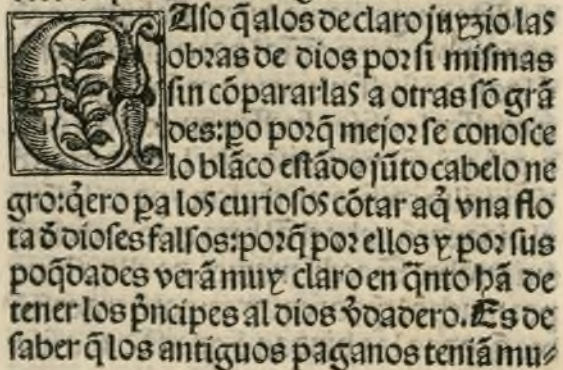 CAso q̃ alos de claro juyzio las
obras de dios por si mismas
sin cõpararlas a otras sõ grã
des: ꝑo porq̃ mejor se conosce
lo blãco estãdo jũto cabe lo ne
gro: q̃ero ꝑa los curiosos cõtar aq̃ vna flo
ta ð dioses falsos: porq̃ por ellos y por sus
poq̃dades verã muy claro en q̃nto hã de
tener los p̃ncipes al dios v̉dadero. Es de
saber q̃ los antiguos paganos teniã mu⸗